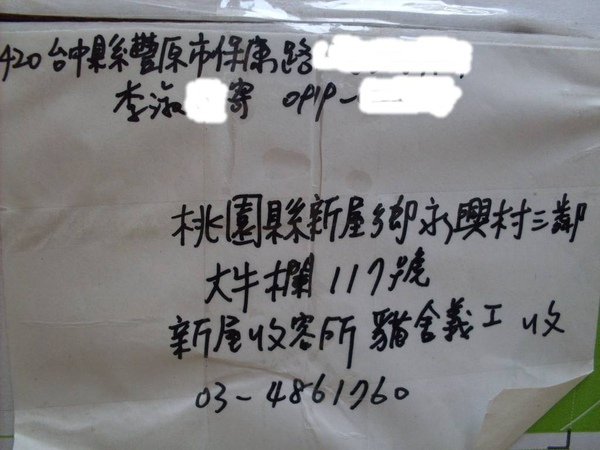 420 台中縣豐原市保康路
李淑 寄 0919-
桃園縣新屋鄉永興村三鄰
大牛欄 117號
新屋收容所 貓舍義工 收
03-4861760